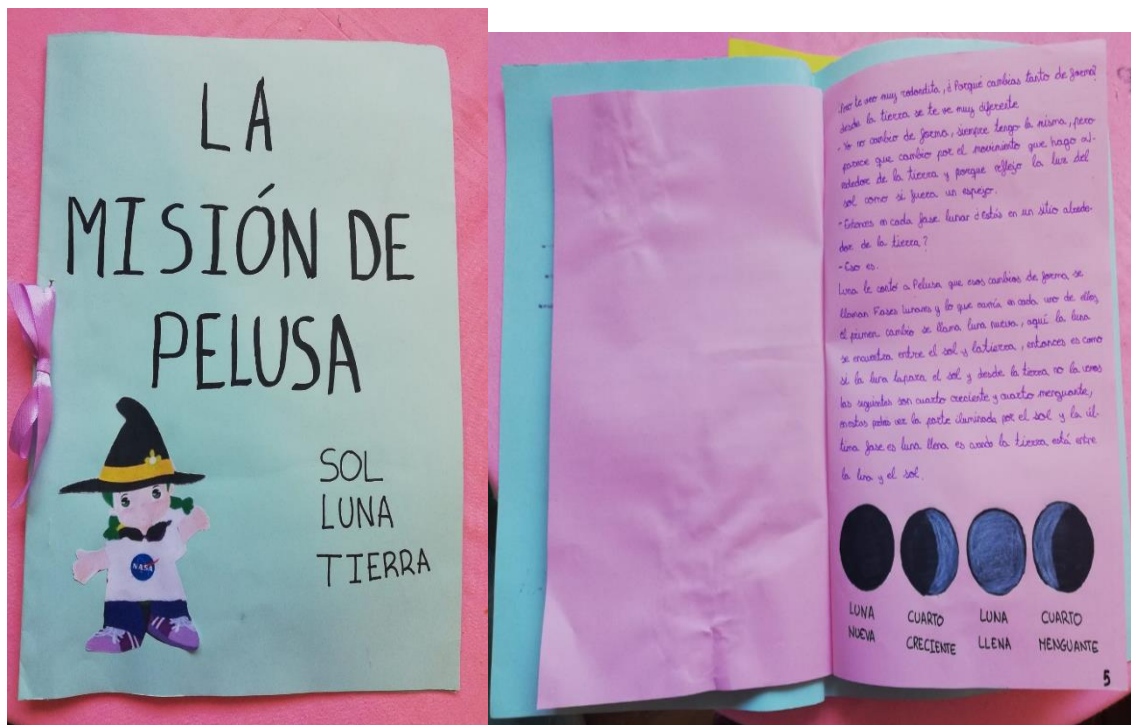 LA
MISIÓN DE
PELUSA
SOL
LUNA
TIERRA
NASA
te veo muy redondita, ¿Porqué cambias tanto de forma?
desde la tierra se te ve muy diferente
- Yo no cambio de forma, siempre tengo la misma, pero
parece que cambio por el movimiento que hago al-
rededor de la tierra y porque reflejo la luz del
sol como si fuera un espejo.
- Entonces en cada fase lunar ¿estás en un sitio alrede-
dor de la tierra?
- Eso es.
Luna le contó a Pelusa que esos cambios de forma, se
llaman Fases lunares y lo que ocurría en cada uno de ellos,
el primer cambio se llama luna nueva, aquí la luna
se encuentra entre el sol y la tierra, entonces es como
si la luna tapara el sol y desde la tierra no la vemos
las siguientes son cuarto creciente y cuarto menguante,
en estas podéis ver la parte iluminada por el sol y la úl-
tima fase es luna llena es cuando la tierra está entre
la luna y el sol.
LUNA CUARTO LUNA CUARTO
NUEVA CRECIENTE LLENA MENGUANTE
5